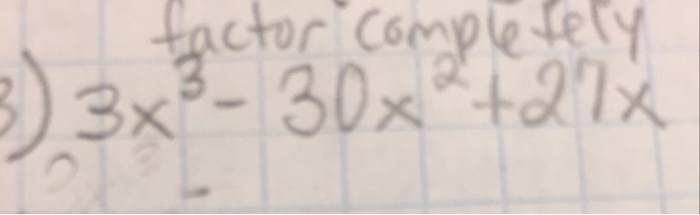 factor completely
3) 3x³ - 30x² + 27x